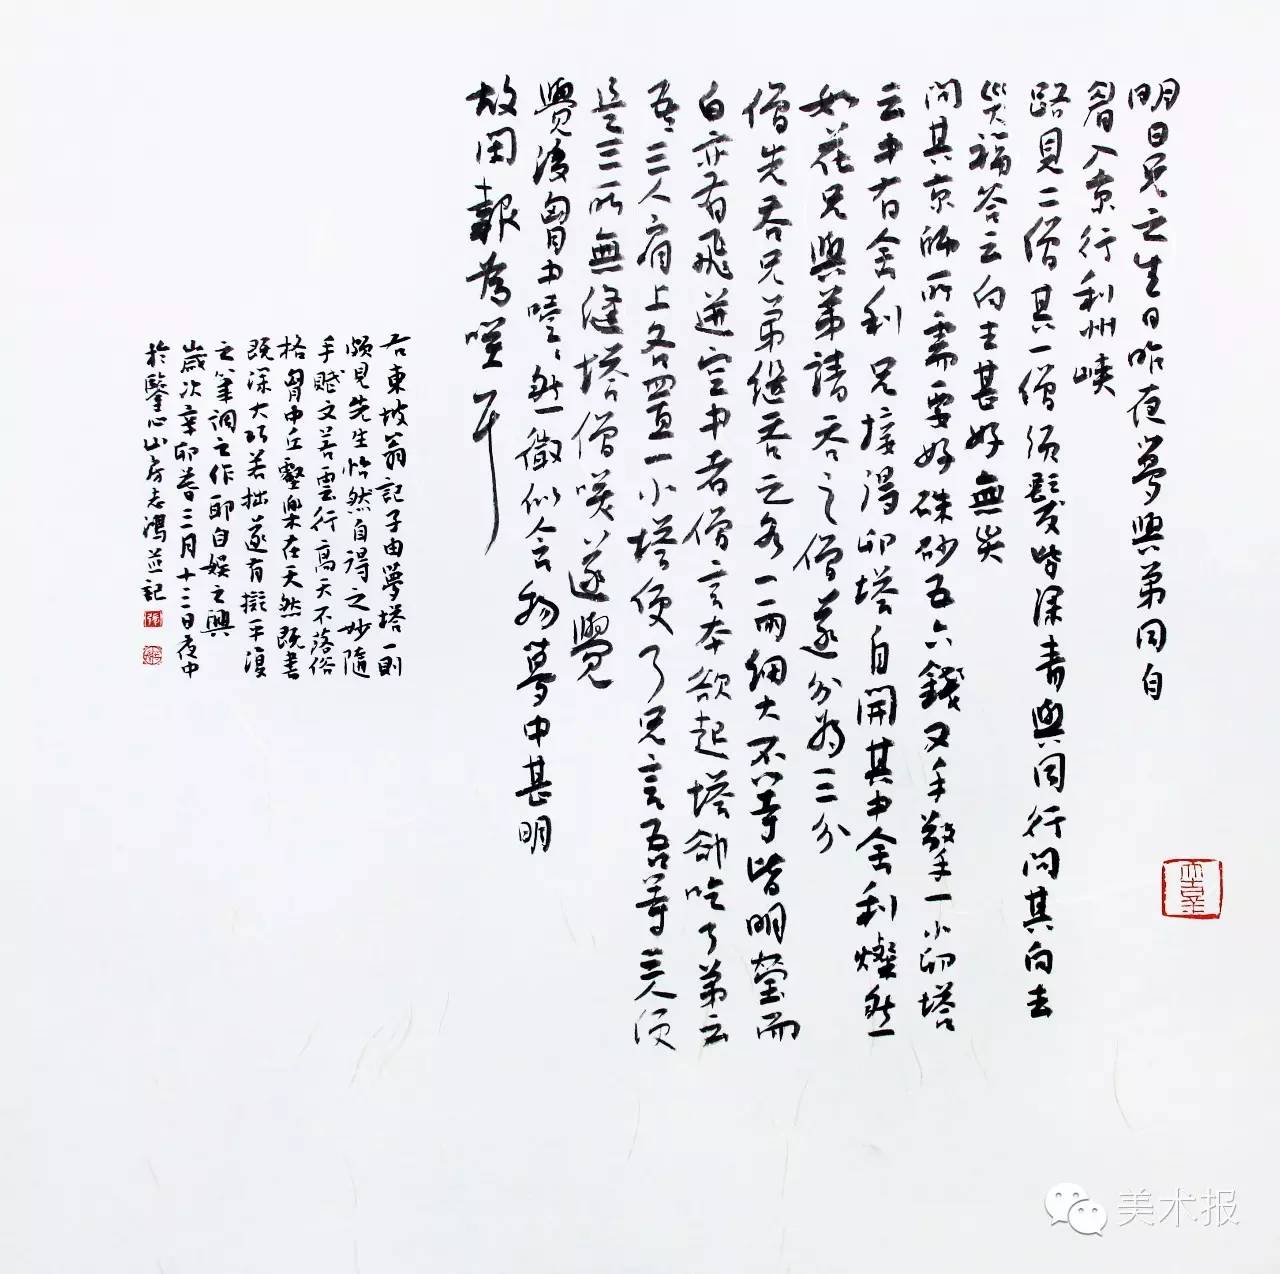 明日兄之生日昨夜夢與弟同自
眉入京行利州峽
路見二僧其一僧須髮皆深青與同行問其向去
災福答云向去甚好無災
問其京師所需要好硃砂五六錢又手擎一小卯塔
云中有舍利兄接得卯塔自開其中舍利燦然
如花兄與弟請吞之僧遂分為三分
僧先吞兄弟繼吞之各一兩細大不等皆明瑩而
白亦有飛迸空中者僧言本欲起塔卻吃了弟云
吾三人肩上各置一小塔便了兄言吾等三人便
是三所無縫塔僧笑遂覺
覺後胷中噎噎然微似含物夢中甚明
故閑報為笑耳
右東坡翁記子由夢塔一則
頗見先生怡然自得之妙隨
手賦文若雲行高天不落俗
格胷中丘壑樂在天然既書
既深大巧若拙遂有擬平復
之筆調之作即自娛之興
歲次辛卯春三月十二日夜中
於鑒心山房志鴻並記
美术报